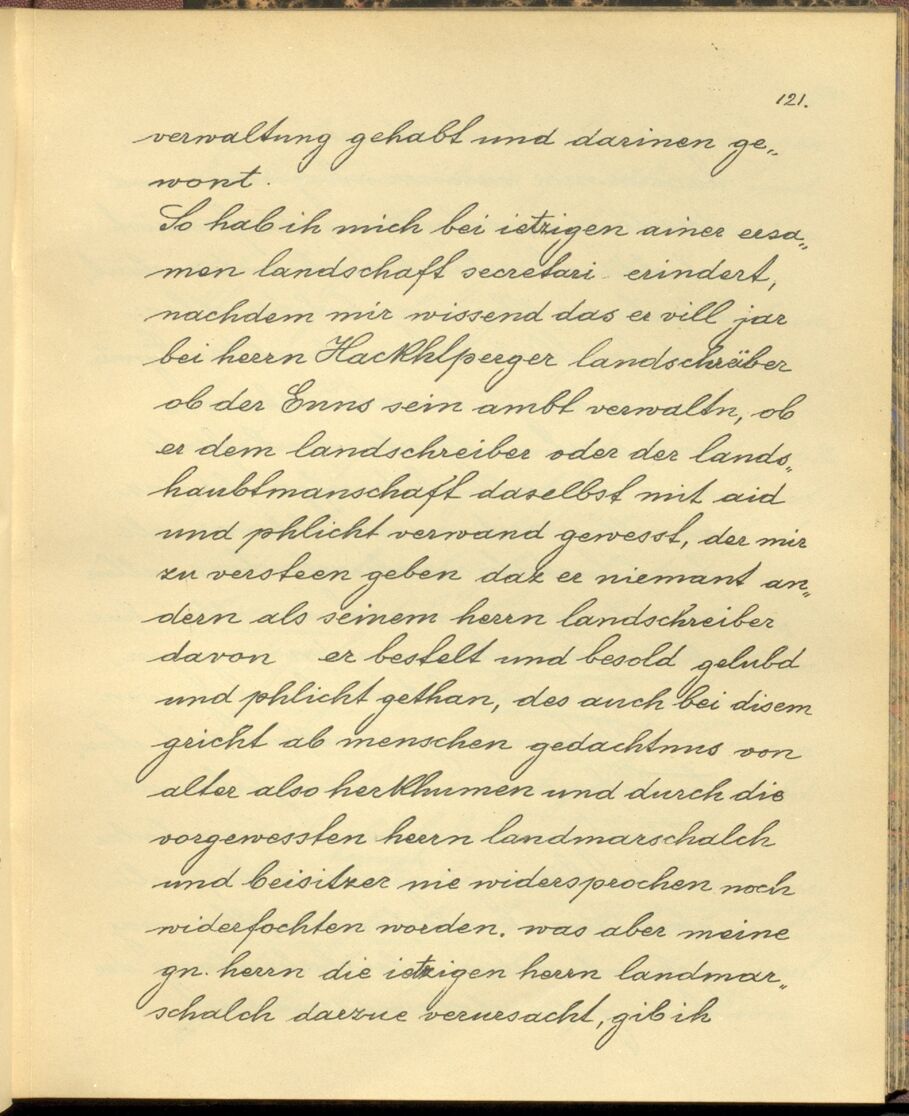 121.
verwaltung gehabt und darinen ge„
wont.
So hab ih mich bei ietzigen ainer ersa„
men landschaft secretari erindert,
nachdem mir wissend das er vill jar
bei herrn Hackhlperger landschräber
ob der Enns sein ambt verwaltn, ob
er dem landschreiber oder der lands„
haubtmanschaft daselbst mit aid
und phlicht verwand gewesst, der mir
zu versteen geben daz er niemant an„
dern als seinem herrn landschreiber
davon er bestelt und besold gelubd
und phlicht gethan, des auch bei disem
gricht ab menschen gedachtnus von
alter also herkhumen und durch die
vorgewessten herrn landmarschalch
und beisitzer nie widersprochen noch
widerfochten worden. was aber meine
gn. herrn die ietzigen herrn landmar„
schalch darzue verursacht, gib ih